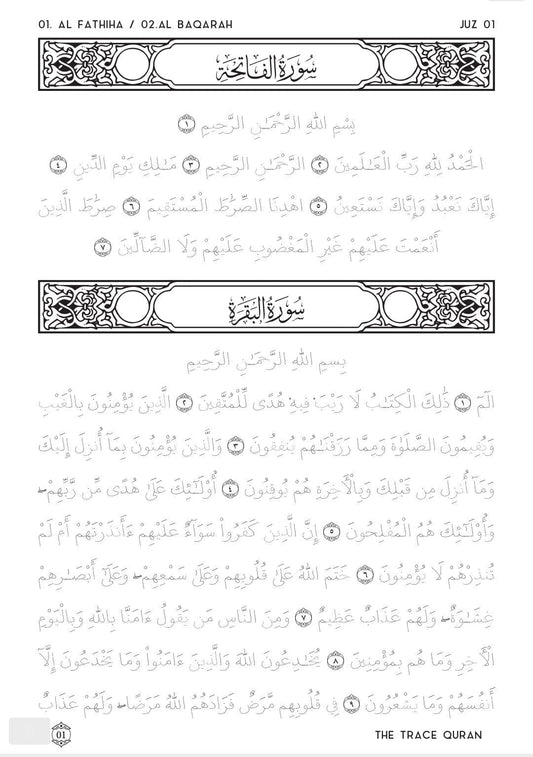 01. AL FATHIHA / 02.AL BAQARAH JUZ 01
سُورَةُ الفَاتِحَة
بِسْمِ اللَّهِ الرَّحْمَـٰنِ الرَّحِيمِ ١
الْحَمْدُ لِلَّهِ رَبِّ الْعَـٰلَمِينَ ٢ الرَّحْمَـٰنِ الرَّحِيمِ ٣ مَـٰلِكِ يَوْمِ الدِّينِ ٤
إِيَّاكَ نَعْبُدُ وَإِيَّاكَ نَسْتَعِينُ ٥ اهْدِنَا الصِّرَٰطَ الْمُسْتَقِيمَ ٦ صِرَٰطَ الَّذِينَ
أَنْعَمْتَ عَلَيْهِمْ غَيْرِ الْمَغْضُوبِ عَلَيْهِمْ وَلَا الضَّآلِّينَ ٧
سُورَةُ البَقَرَة
بِسمِ اللَّهِ الرَّحْمَـٰنِ الرَّحِيمِ
الٓمٓ ١ ذَٰلِكَ الْكِتَـٰبُ لَا رَيْبَ ۛ فِيهِ ۛ هُدًى لِّلْمُتَّقِينَ ٢ الَّذِينَ يُؤْمِنُونَ بِالْغَيْبِ
وَيُقِيمُونَ الصَّلَوٰةَ وَمِمَّا رَزَقْنَـٰهُمْ يُنفِقُونَ ٣ وَالَّذِينَ يُؤْمِنُونَ بِمَآ أُنزِلَ إِلَيْكَ
وَمَآ أُنزِلَ مِن قَبْلِكَ وَبِالْأَخِرَةِ هُمْ يُوقِنُونَ ٤ أُوْلَـٰٓئِكَ عَلَىٰ هُدًى مِّن رَّبِّهِمْ ۖ
وَأُوْلَـٰٓئِكَ هُمُ الْمُفْلِحُونَ ٥ إِنَّ الَّذِينَ كَفَرُواْ سَوَآءٌ عَلَيْهِمْ ءَأَنذَرْتَهُمْ أَمْ لَمْ
تُنذِرْهُمْ لَا يُؤْمِنُونَ ٦ خَتَمَ اللَّهُ عَلَىٰ قُلُوبِهِمْ وَعَلَىٰ سَمْعِهِمْ ۖ وَعَلَىٰٓ أَبْصَـٰرِهِمْ
غِشَـٰوَةٌ ۖ وَلَهُمْ عَذَابٌ عَظِيمٌ ٧ وَمِنَ النَّاسِ مَن يَقُولُ ءَامَنَّا بِاللَّهِ وَبِالْيَوْمِ
الْأَخِرِ وَمَا هُم بِمُؤْمِنِينَ ٨ يُخَـٰدِعُونَ اللَّهَ وَالَّذِينَ ءَامَنُواْ وَمَا يَخْدَعُونَ إِلَّآ
أَنفُسَهُمْ وَمَا يَشْعُرُونَ ٩ فِي قُلُوبِهِم مَّرَضٌ فَزَادَهُمُ اللَّهُ مَرَضًا ۖ وَلَهُمْ عَذَابٌ
01 THE TRACE QURAN